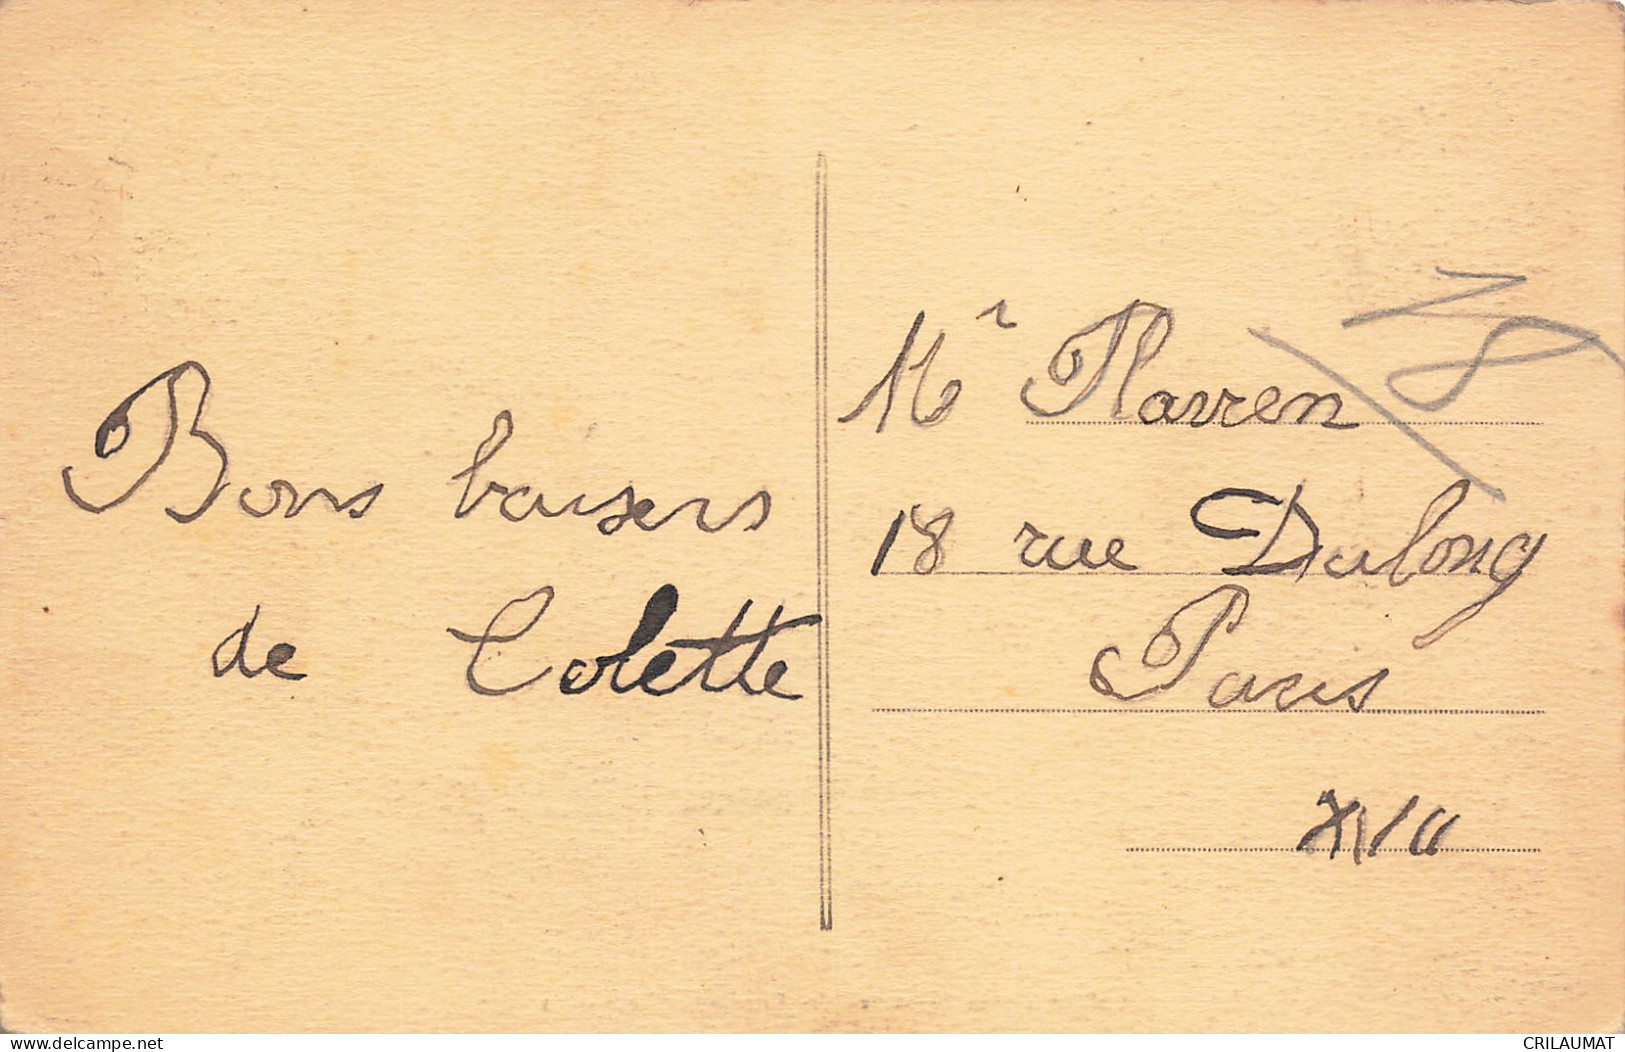 Bons baisers
de Colette
Mr
18 rue Dulong
Paris
XVII
delcampe.net
CRILAUMAT